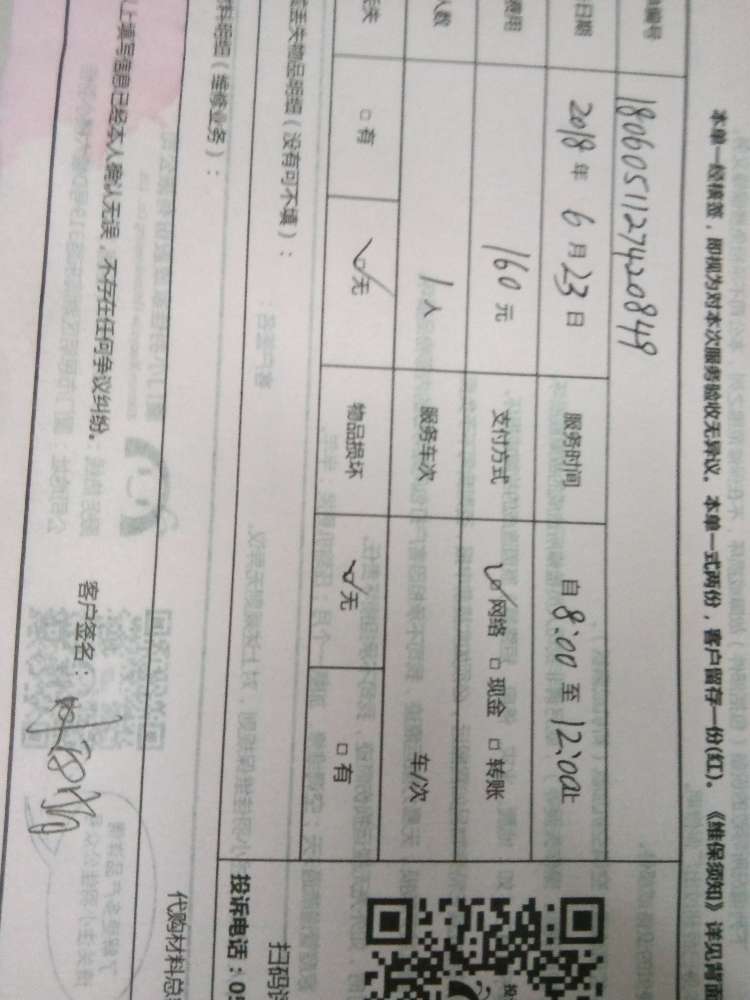 本单一经核签，即视为对本次服务验收无异议。本单一式两份，客户留存一份(红)。《维保须知》详见背面
编号 1806051127420849
日期 2018 年 6 月 23 日 服务时间 自 8:00 至 12:00止
费用 160 元 支付方式 ☑网络 □现金 □转账
人数 1 人 服务车次 车/次
□有 ☑无 物品损坏 ☑无 □有
丢失物品明细（没有可不填）：
料明细（维修业务）：
上填写信息已经本人确认无误，不存在任何争议纠纷。 客户签名：
扫码
投诉电话：05
代购材料总